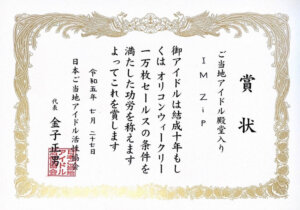 賞状
ご当地アイドル殿堂入り
IM ZIP
御アイドルは結成十年もし
くはオリコンウィークリー
一万枚セールスの条件を
満たした功労を称えます
よってこれを賞します
令和五年七月二十七日
日本ご当地アイドル活性協会
代表 金子正男